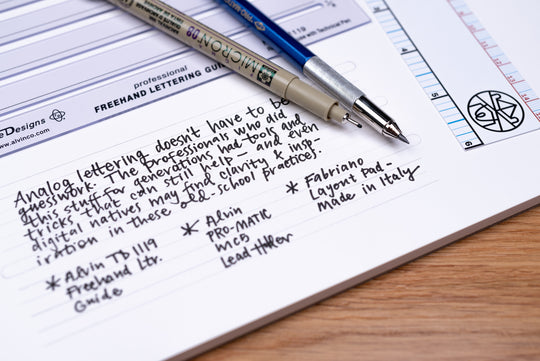 MICRON 08
1119
with Technical Pen
professional
FREEHAND LETTERING GU
eDesigns
www.alvinco.com
Analog lettering doesn't have to be
guesswork. The professionals who did
this stuff for generations had tools and
tricks that can still help – and even
digital natives may find clarity & insp-
iration in these old-school practices.
* Alvin TD 1119
Freehand Ltr.
Guide
* Alvin
PRO-MATIC
MC5
Lead Hldr
* Fabriano
Layout Pad –
Made in Italy
4
5
6